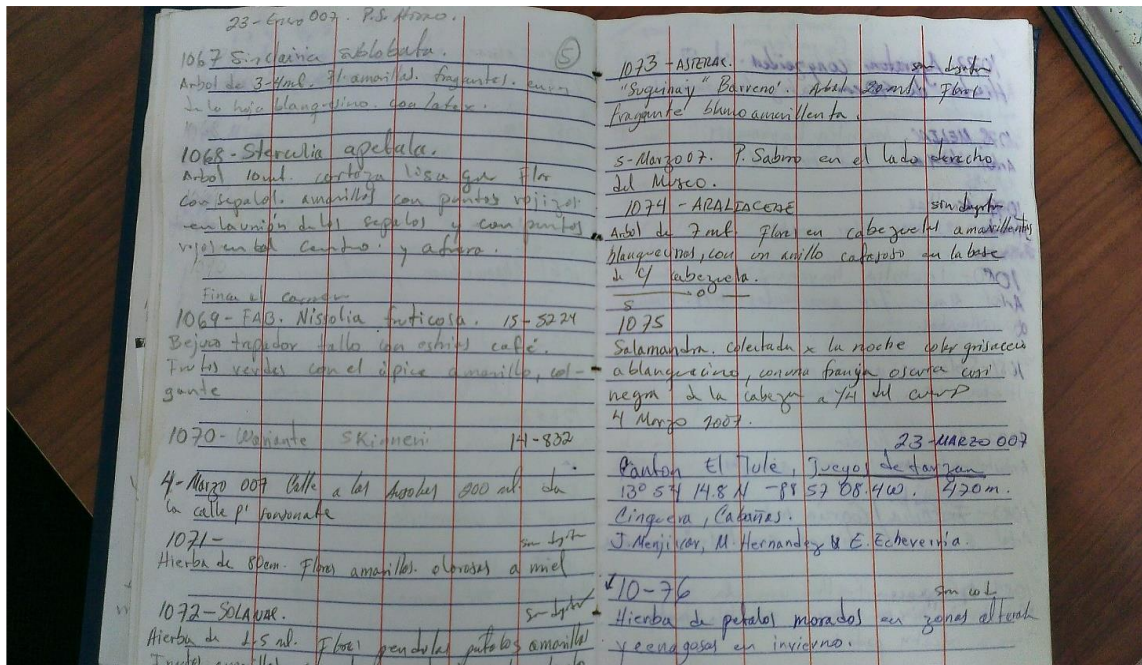 23-Enero 007. P.S. Homo.
1067 Sinclairia sublobata. 5
Arbol de 3-4mt. Fl. amarillas. fragantes. envez
de la hoja blanquesino. con latex.
1068-Sterculia apetala.
Arbol 10mt. corteza lisa gris Flor
con sepalos. amarillos con puntos rojizos
en la unión de los sepalos y con puntos
rojos en el centro. y afuera.
Finca el Carmen
1069-FAB. Nissolia fruticosa. 15-5224
Bejuco trepador tallo con estrias café.
Frutos verdes con el ápice amarillo, col-
gante
1070- Skinneri 14-832
4-Marzo 007 Calle a los 200 mt. de
la calle p' Sonsonate
1071-
Hierba de 80cm. Flores amarillas. olorosas a miel
1072-SOLANAC.
Hierba de 1.5 mt. Flores pendulas petalos amarillos
1073-ASTERAC.
"Suquinay" Barreno'. Arbol 20mt. Flores
fragante blanco amarillenta.
5-Marzo 07. P. Saburo en el lado derecho
del Museo.
1074-ARALIACEAE
Arbol de 7 mt Flores en cabezuelas amarillentas
blanquecinas, con un anillo cafesoso en la base
de c/ cabezuela.
S
1075
Salamandra. colectada x la noche color grisaceo
a blanquecino, con una franja oscura casi
negra de la cabeza a 1/4 del cuerpo
4 Marzo 2007.
23-MARZO 007
Canton El Tule, Juegos de tarzan
13° 54 14.8 N -88 57 08.4 W. 420 m.
Cinquera, Cabañas.
J. Menjivar, M. Hernandez & E. Echeverria.
10-76 sin col.
Hierba de petalos morados en zonas alterada
y cenagosas en invierno.